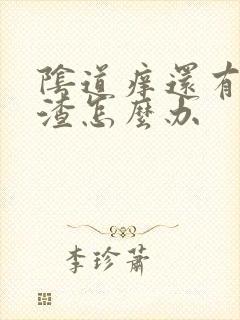 陰道痒還有
渣怎麼办
李珍蕭